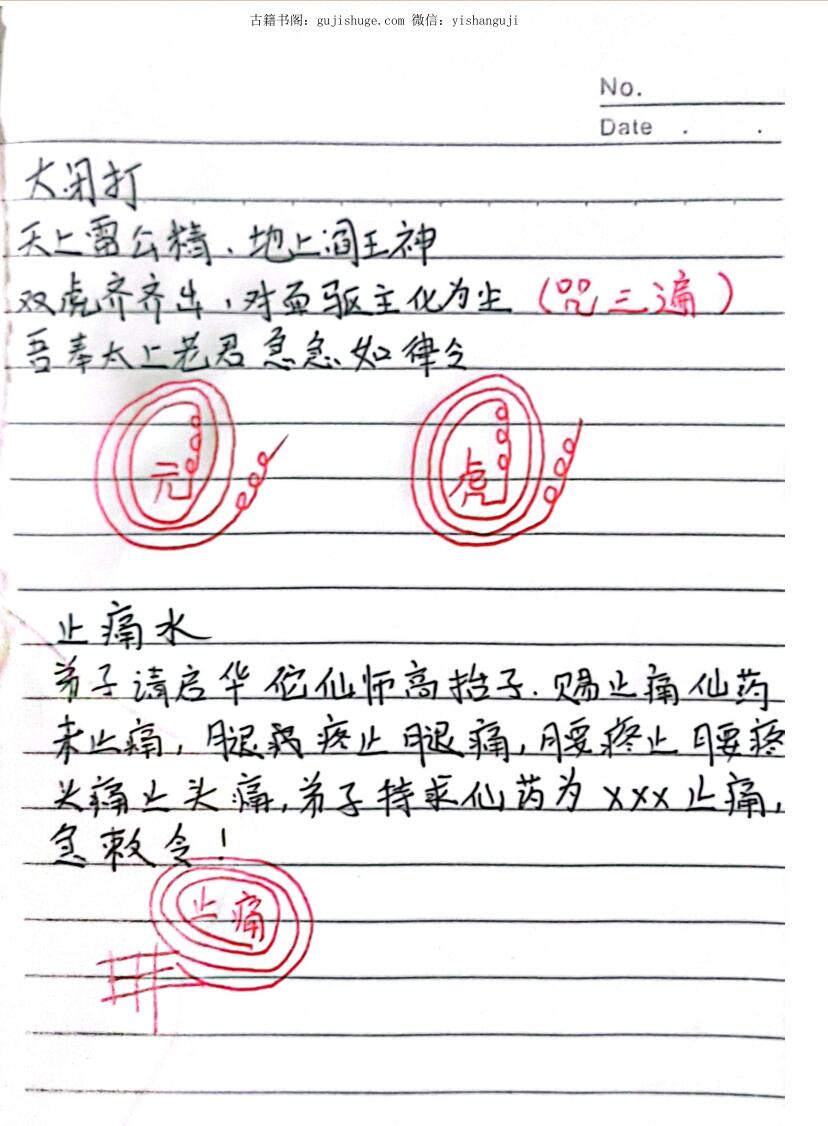 古籍书阁：gujishuge.com 微信：yishanguji
No.
Date . .
大闭打
天上雷公精、地上阎王神
双虎齐齐出，对面驱主化为尘（咒三遍）
吾奉太上老君急急如律令
元 虎
止痛水
弟子请启华佗仙师高抬手.赐止痛仙药
来止痛，腿疼止腿痛，腰疼止腰疼
头痛止头痛，弟子持求仙药为XXX止痛，
急敕令！
止痛